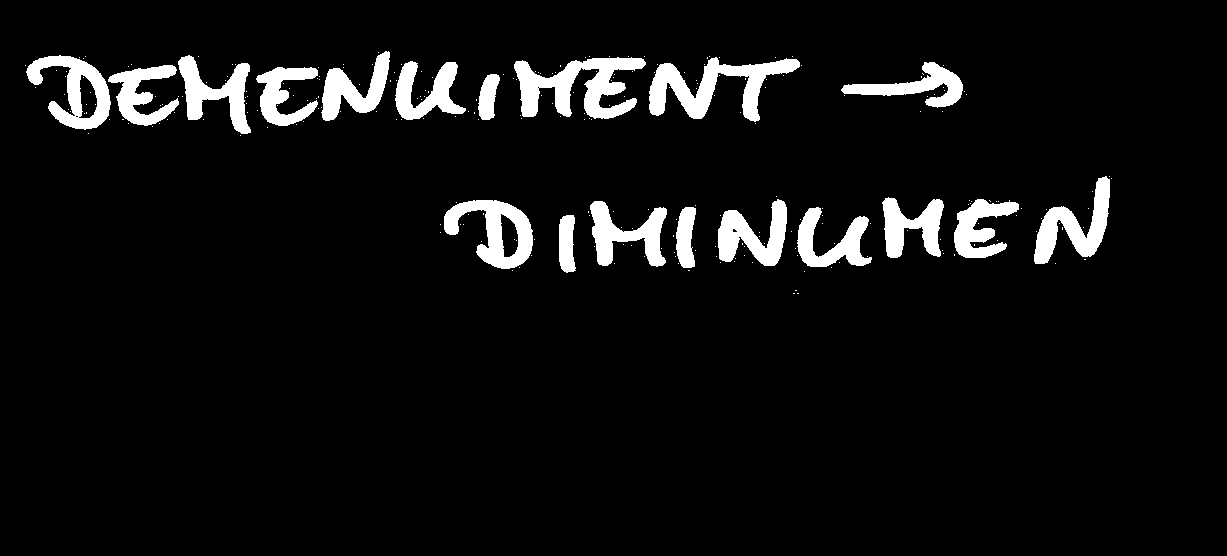 DEMENUIMENT →
DIMINUMEN